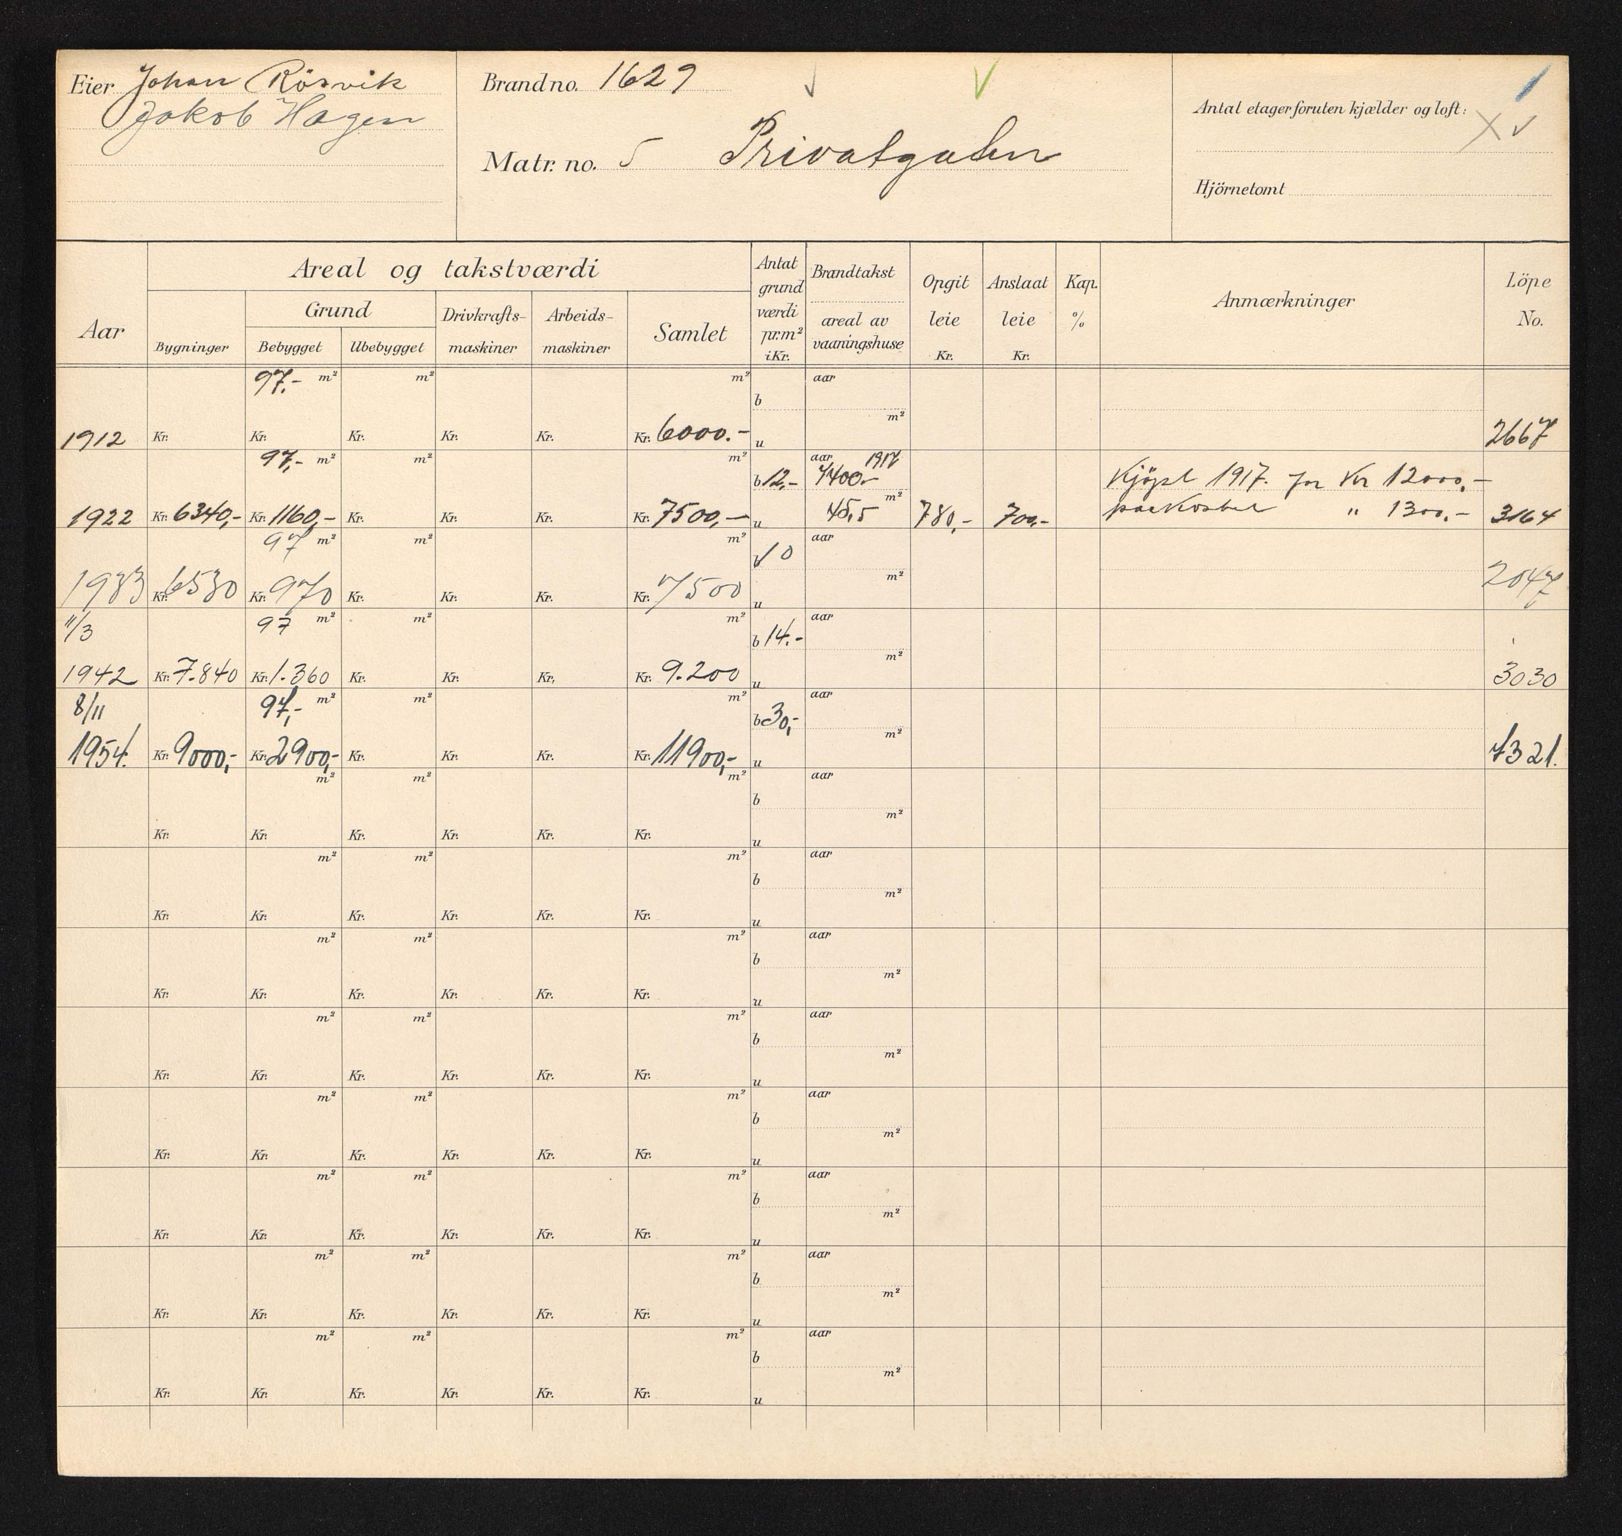 Eier Johan Rösvik
Jakob Hagen
Brandno. 1629
Matr. no. 5 Privatgaten
Antal etager foruten kjælder og loft:
Hjörnetomt
Areal og takstværdi
Aar
Bygninger
Grund
Bebygget
Ubebygget
Drivkrafts-maskiner
Arbeids-maskiner
Samlet
Antat grund værdi pr.m² i Kr.
Brandtakst
areal av vaaningshuse
Opgit leie Kr.
Anslaat leie Kr.
Kap. %
Anmærkninger
Löpe No.
97.- m² m² m² b aar m²
1912 Kr. Kr. Kr. Kr. Kr. Kr. 6000.- u 2667
97,- m² m² m² b 12,- aar 1917 7400.- m² Kjöpt 1917. for Kr 12000,-
1922 Kr. 6340,- Kr. 1160,- Kr. Kr. Kr. Kr. 7500,- u 45,5 780,- 700,- paakostet " 1300,- 3164
97 m² m² m² b 10 aar m²
1933 Kr. 6530 Kr. 970 Kr. Kr. Kr. Kr. 7500 u 2047
11/3 97 m² m² m² b 14.- aar m²
1942 Kr. 7.840 Kr. 1.360 Kr. Kr. Kr. Kr. 9.200 u 3030
8/11 97,- m² m² m² b 30,- aar m²
1954. Kr. 9000,- Kr. 2900,- Kr. Kr. Kr. Kr. 11900,- u 7321.
m² m² m² b aar m²
Kr. Kr. Kr. Kr. Kr. Kr. u
m² m² m² b aar m²
Kr. Kr. Kr. Kr. Kr. Kr. u
m² m² m² b aar m²
Kr. Kr. Kr. Kr. Kr. Kr. u
m² m² m² b aar m²
Kr. Kr. Kr. Kr. Kr. Kr. u
m² m² m² b aar m²
Kr. Kr. Kr. Kr. Kr. Kr. u
m² m² m² b aar m²
Kr. Kr. Kr. Kr. Kr. Kr. u
m² m² m² b aar m²
Kr. Kr. Kr. Kr. Kr. Kr. u
m² m² m² b aar m²
Kr. Kr. Kr. Kr. Kr. Kr. u